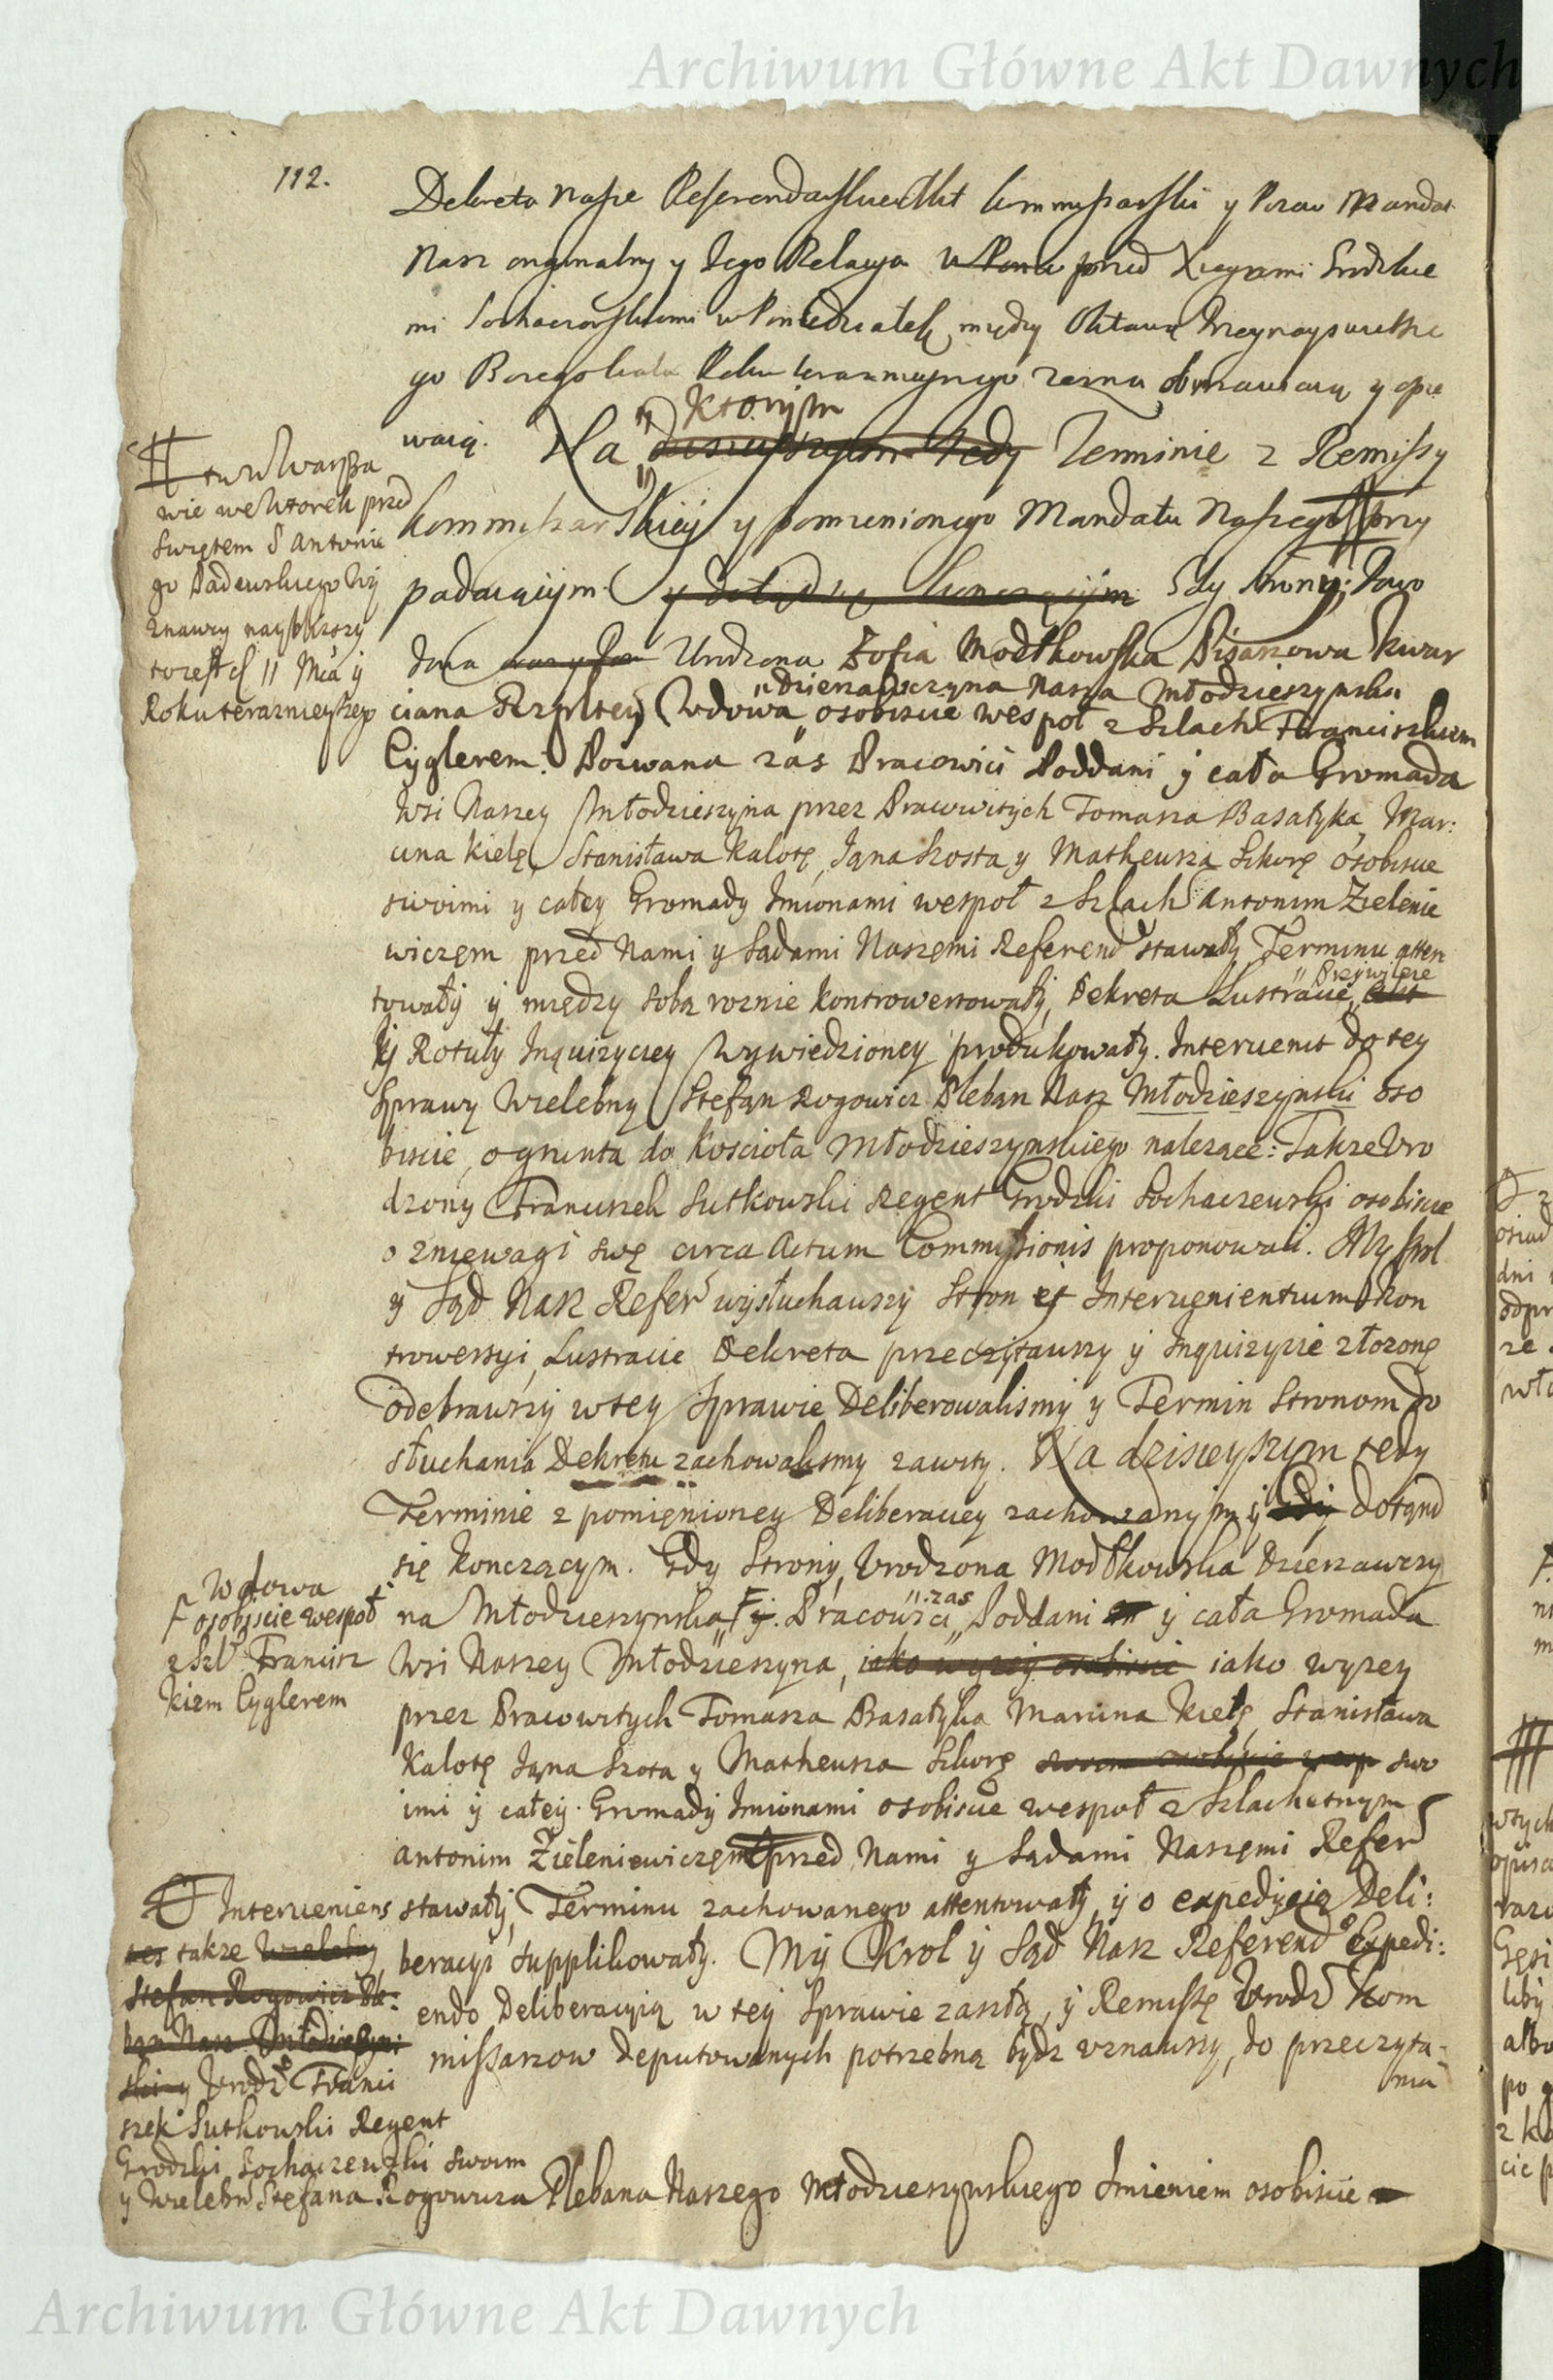 Archiwum Główne Akt Dawnych
112.
Dekreta Nasze Referendarskie Akt kommissarski y Pozew Mandat
Nasz oryginalny y Jego Relacya przed Xięgami Grodzkie
mi Sochaczewskiemi w Poniedziałek między Oktawą Przenayswiętsze
go Bozego Ciała Roku teraznieyszego zezna obmawiaią y opie
waią. Na ktorym Terminie z Remissy
kommissarskiey y pomienionego Mandatu Naszego przy
padaiącym Gdy Strony, Powo
dowa Urodzona Zofia Modtkowska Pisarzowa Kwar
dzierzawczyna Nasza Młodzieszynska
ciana Rzpltey Wdowa osobiscie wespoł z Szlach Franciszkiem
Cyglerem. Pozwana zas Pracowici Poddani y cała Gromada
Wsi Naszey Młodzieszyna przez Pracowitych Tomasza Basatyka, Mar:
cina Kielę, Stanisława Kalotę, Jana Szota y Matheusza Szkorę osobiscie
swoimi y całey Gromady Imionami wespoł z Szlach Antonim Zielenie
wiczem przed Nami y Sądami Naszemi Referend stawały Terminu atten
towały y między sobą roznie kontrowertowały, Dekreta Lustracie, Przywileie
y Rotuły Inquizyczey Wywiedzioney produkowały. Intervenit do tey
Sprawy Wielebny Stefan Rogowicz Pleban Nasz Młodzieszynski oso
biscie, o grunta do Koscioła Młodzieszynskiego nalezące: Takze Uro
dzony Franciszek Sutkowski Regent Grodzki Sochaczewski osobiscie
o zniewagi swę circa Actum Commissionis proponowali. My Krol
y Sąd Nasz Refer wysłuchawszy Stron et Intervenientium kon
trowersyi, Lustracie Dekreta przeczytawszy y Inquizycie złozonę
odebrawszy w tey Sprawie Deliberowalismy y Termin Stronom do
słuchania Dekretu zachowalismy zawity. Na dzisieyszym tedy
Terminie z pomięnioney Deliberacyey zachowanym y dotąnd
się konczącym. Gdy Strony, Urodzona Modtkowska Dzierzawczy
na Młodzieszynska, Pracowici zas Poddani y cała Gromada
Wsi Naszey Młodzieszyna, iako wyzey
przez Pracowitych Tomasza Basatyka Marcina Kielę, Stanisława
Kalotę Jana Szota y Matheusza Szkorę swo
imi y całey Gromady Imionami osobiscie wespoł z Szlachetnym
Antonim Zieleniewiczem przed Nami y Sądami Naszemi Refer
stawały, Terminu zachowanego attentowały y o expedycię Deli:
beracyi supplikowały. My Krol y Sąd Nasz Referend Expedi:
endo Deliberacyią w tey Sprawie zaszłą, y Remissę Urodz Kom
missarzow deputowanych potrzebną bydz uznawszy, do przeczyta-
nia
w Warsza
wie we Wtorek przed
Swiętem S Antonie
go Padewskiego Wy
znawcy nayblizszy
to iest d 11 Mca y
Roku teraznieyszego
Wdowa
osobiscie wespoł
z Szl Francisz
kiem Cyglerem
Interveniens
takze
Urodz Franci
szek Sutkowski Regent
Grodzki Sochaczewski swoim
y Wielebn Stefana Rogowicza Plebana Naszego Młodzieszynskiego Imieniem osobiscie
Archiwum Główne Akt Dawnych